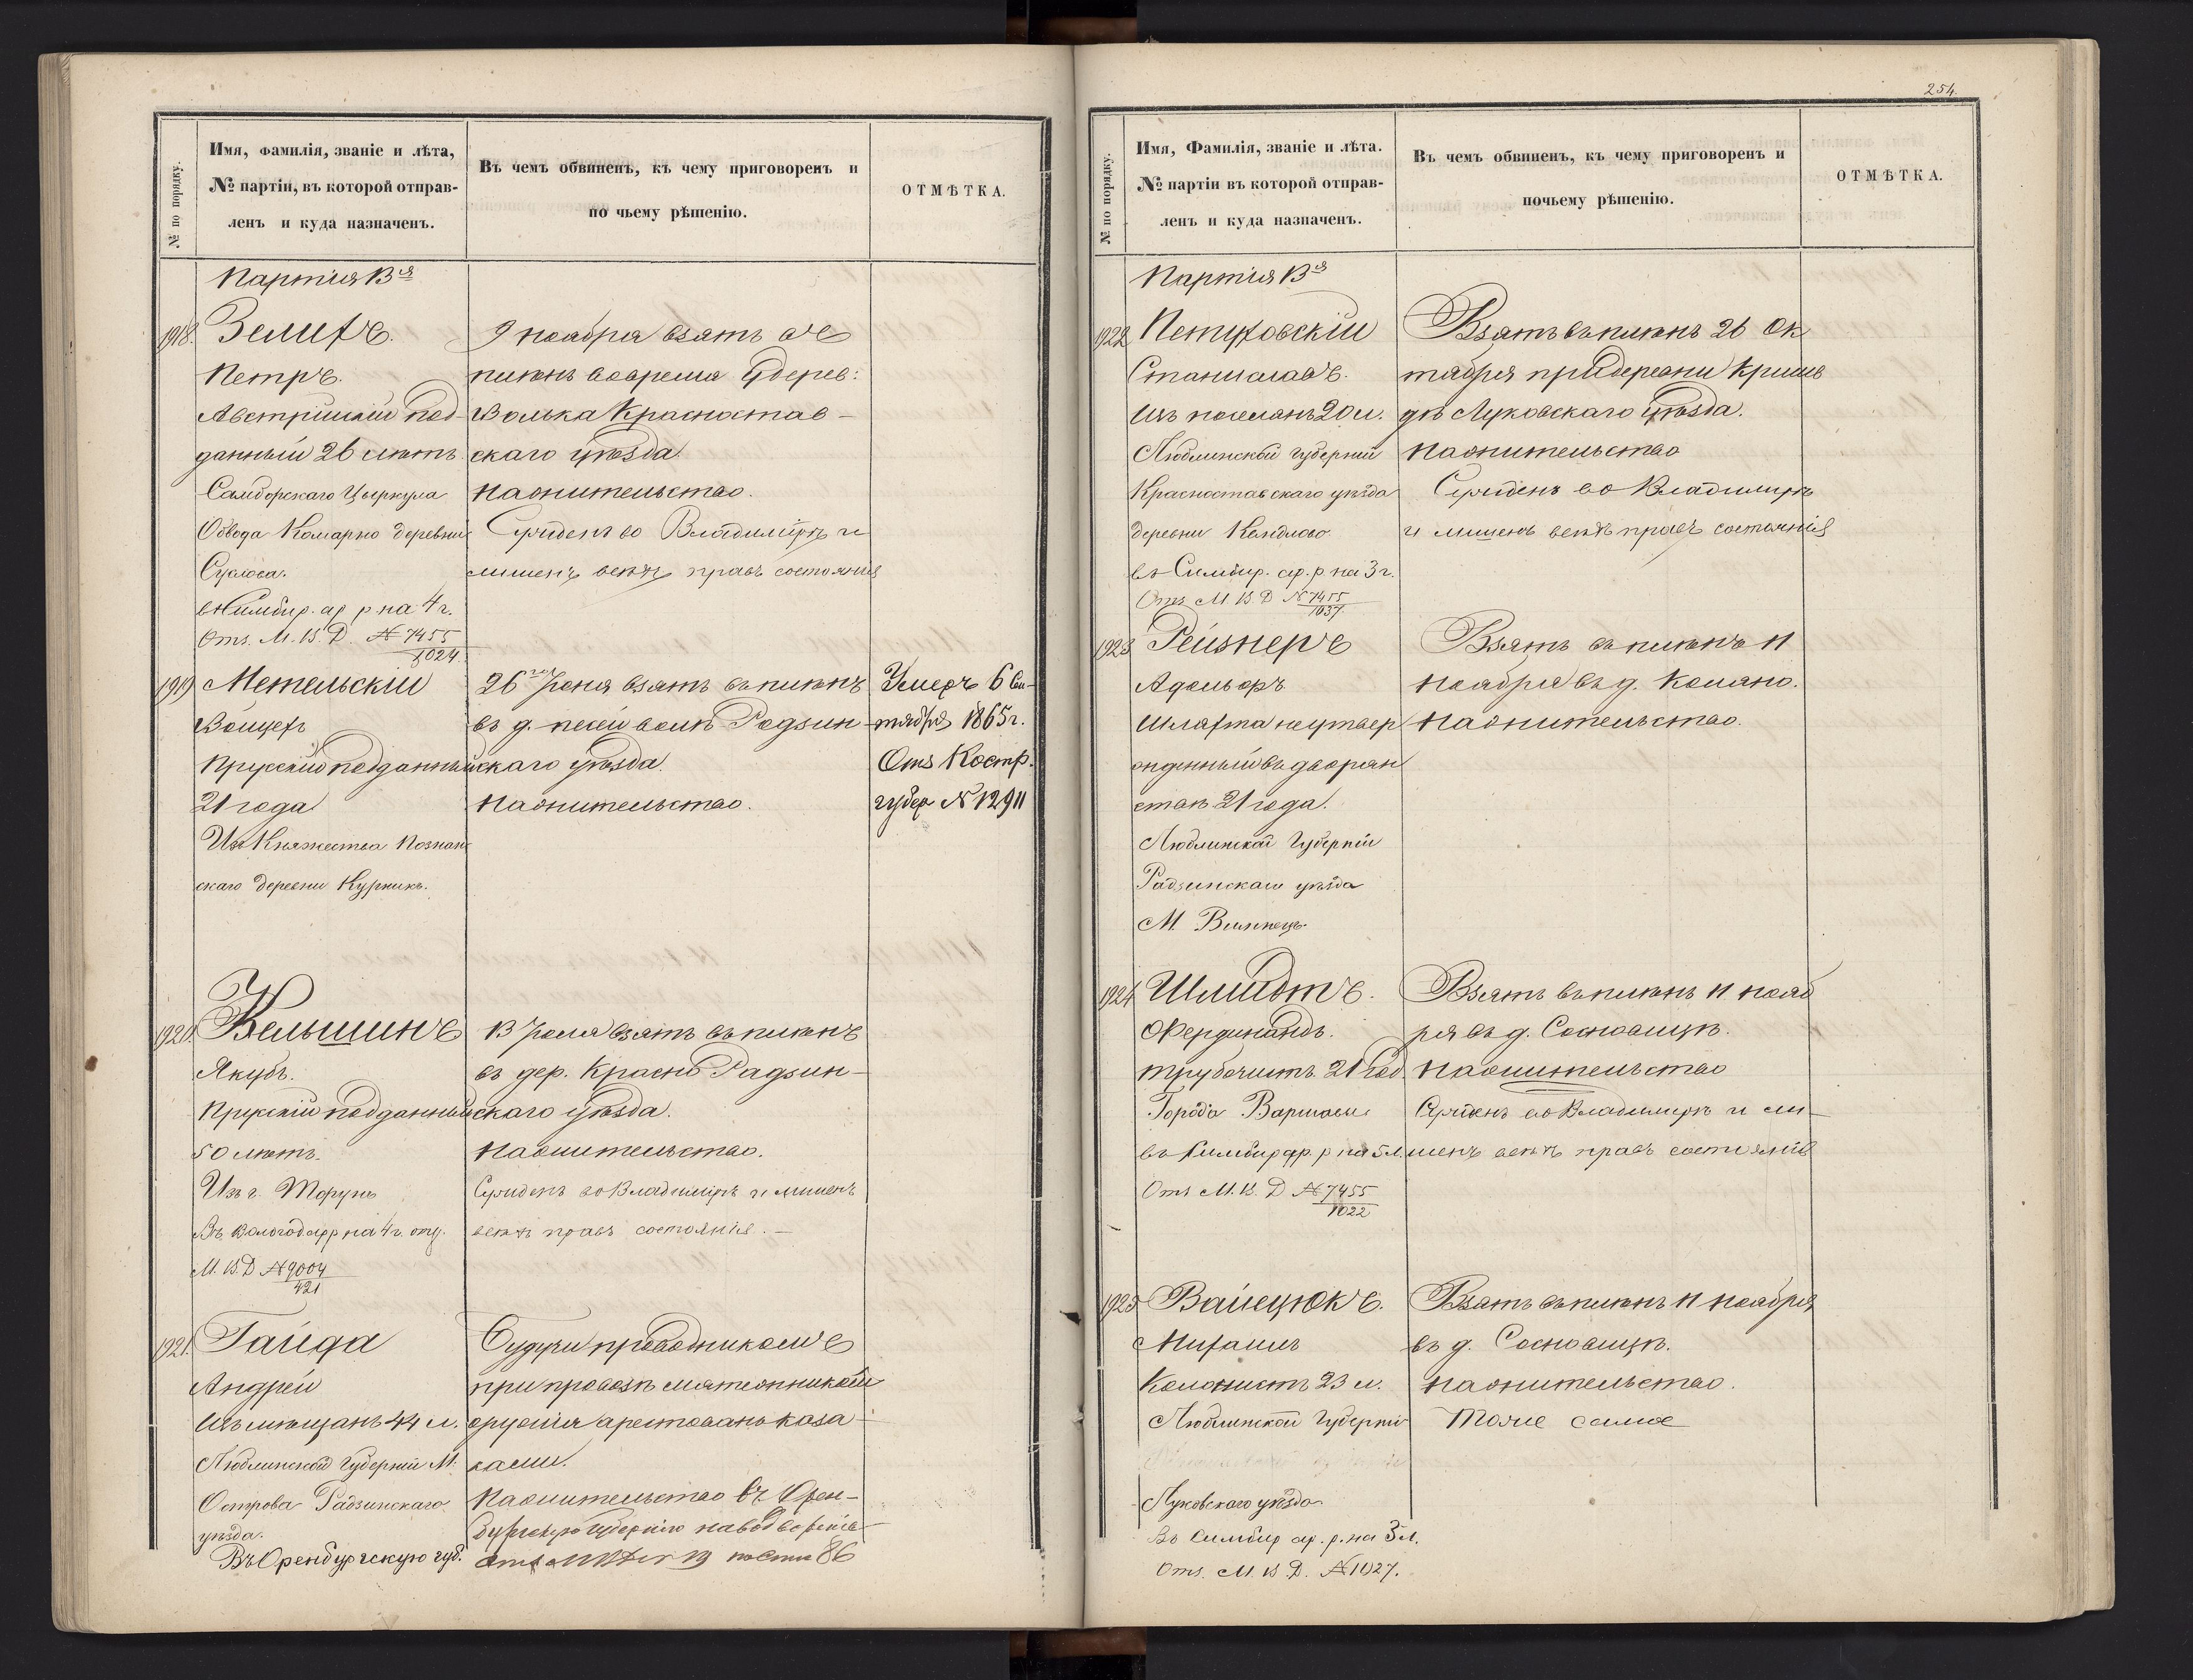 № по порядку.
Имя, фамилія, званіе и лѣта,
№ партіи, въ которой отправ-
ленъ и куда назначенъ.
Въ чемъ обвиненъ, къ чему приговоренъ и
по чьему рѣшенію.
ОТМѢТКА.
Партія 13я
1918. Зелихъ.
Петръ.
Австрійскій под-
данный 26 лѣтъ
Самборскаго Циркула
Обвода Комарно деревни
въ Симбир. ар р на 4 г.
Отз. М. В. Д. № 7455
1024
9 ноября взятъ въ
плѣнъ вовремя у дерев:
Волька Красностав-
скаго уѣзда
На жительство.
Сужденъ во Владимірѣ и
лишенъ всѣхъ правъ состоянія
1919 Метельскій
Войцехъ
Прусскій подданный
21 года
Изъ Княжества Познан
скаго деревни Курникъ.
26го Іюня взятъ въ плѣнъ
въ д. волѣ Радзин-
скаго уѣзда.
На жительство.
Умеръ 6 Сен-
тября 1865 г.
Отз Костр.
губер № 12911
1920. Кельшинъ
Якубъ.
Прускій подданный
50 лѣтъ.
Изъ г. Торунъ
Въ Вологод ар р на 4 г. отз.
М. В. Д № 9004
421
13 Іюля взятъ въ плѣнъ
въ дер. Красно Радзин-
скаго уѣзда.
На жительство.
Сужденъ во Владимірѣ и лишенъ
всѣхъ правъ состоянія. –
1921. Гайда
Андрей
Изъ мѣщанъ 44 л.
Люблинской Губерніи М.
Острова Радзинскаго
уѣзда.
Въ Оренбургскую губ.
Будучи проводникомъ
при провозѣ мятежникамъ
оружія арестованъ каза-
ками.
На жительство въ Орен-
бургскую Губернію на водвореніе
86
254.
№ по порядку.
Имя, Фамилія, званіе и лѣта.
№ партіи въ которой отправ-
ленъ и куда назначенъ.
Въ чемъ обвиненъ, къ чему приговоренъ и
почьему рѣшенію.
ОТМѢТКА.
Партія 13я
1922 Петуховскій
Станиславъ.
Изъ поселянъ 20 л.
Люблинской губерніи
Красноставскаго уѣзда
деревни
въ Симбир. ар. р на 3 г.
Отз М. В. Д № 7455
1037.
Взятъ въ плѣнъ 26 Ок
тября при деревни Кривѣ
дѣ Луковскаго уѣзда.
На жительство
Сужденъ во Владимірѣ
и лишенъ всѣхъ правъ состоянія
1923 Рейзнеръ
Адольфъ
Шляхта неутвер
жденный въ дворян
ствѣ 21 года.
Люблинской Губерніи
Радзинскаго уѣзда
Взятъ въ плѣнъ 11
ноября въ д. Коляно.
На жительство.
1924 Шмидтъ.
Фердинандъ.
трубочистъ 21 год.
Города Варшавы
въ Симбир ар. р на 5 л.
Отз М. В. Д № 7455
1022
Взятъ въ плѣнъ 11 нояб
ря въ д. Сосновицѣ.
На жительство
Сужденъ во Владимірѣ и ли-
шенъ всѣхъ правъ состоянія
1925 Вайсцюкъ.
Михаилъ
Колонистъ 23 л.
Люблинской Губерніи
Луковскаго уѣзда.
Въ Симбир ар. р. на 3 л.
Отз. М. В. Д. № 1027.
Взятъ въ плѣнъ 11 ноября
въ д. Сосновицѣ.
На жительство.
Тоже самое